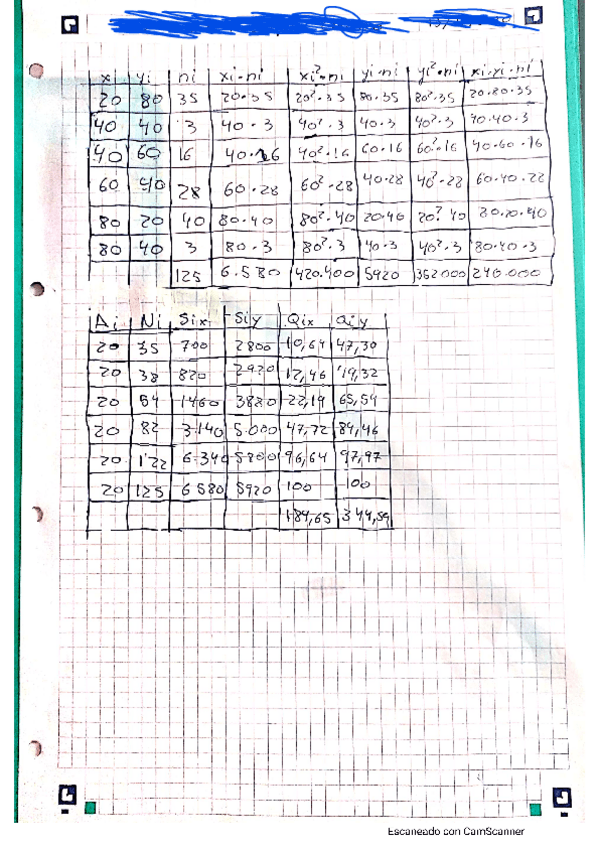 xi yi ni xi·ni xi²·ni yi·ni yi²·ni xi·yi·ni
20 80 35 20·35 20²·35 80·35 80²·35 20·80·35
40 40 3 40·3 40²·3 40·3 40²·3 40·40·3
40 60 16 40·16 40²·16 60·16 60²·16 40·60·16
60 40 28 60·28 60²·28 40·28 40²·28 60·40·28
80 20 40 80·40 80²·40 20·40 20²·40 80·20·40
80 40 3 80·3 80²·3 40·3 40²·3 80·40·3
125 6.580 420.400 5920 362000 240.000
Ai Ni Six Siy Qix Qiy
20 35 700 2800 10,64 47,30
20 38 820 2920 12,46 49,32
20 54 1460 3880 22,19 65,54
20 82 3.140 5.000 47,72 84,46
20 122 6.340 5800 96,64 97,97
20 125 6580 5920 100 100
189,65 344,59
Escaneado con CamScanner